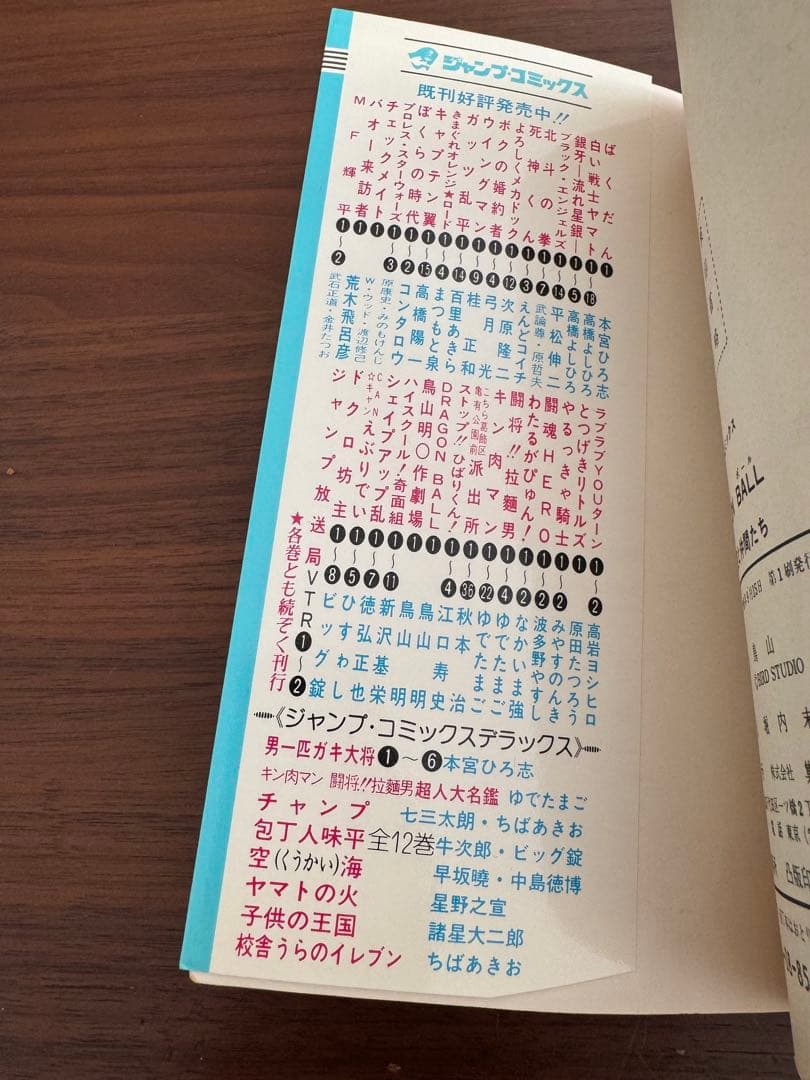 ジャンプ・コミックス
既刊好評発売中!!
ばくだん ❶ 本宮ひろ志
白い戦士ヤマト ❶〜⓲ 高橋よしひろ
銀牙―流れ星 銀― ❶〜❺ 高橋よしひろ
ブラック・エンジェルズ ❶〜⓮ 平松伸二
北斗の拳 ❶〜❼ 武論尊・原哲夫
死神くん ❶〜❸ えんどコイチ
よろしくメカドック ❶〜⓬ 次原隆二
ボクの婚約者 ❶〜❹ 弓月光
ウイングマン ❶〜❾ 桂正和
ガッツ乱平 ❶〜⓮ 百里あきら
きまぐれオレンジ★ロード ❶〜❹ まつもと泉
キャプテン翼 ❶〜⓯ 高橋陽一
ぼくらの時代 ❶〜❷ コンタロウ
プロレス・スターウォーズ ❶〜❸ 原康史・みのもけんじ
チェックメイト ❶ W・ウッド・渡辺修己
バオー来訪者 ❶ 荒木飛呂彦
MF輝平 ❶〜❷ 武石正道・金井たつお
ラブラブYOUターン ❶〜❷ 高岩ヨシヒロ
とつげきリトルズ ❶ 原田たつろう
やるっきゃ騎士 ❶ みやすのんき
闘魂HERO ❶〜❷ 波多野やすし
わたるがぴゅん! ❶〜❷ なかいま強
闘将!!拉麵男 ❶〜❹ ゆでたまご
キン肉マン ❶〜㉒ ゆでたまご
こちら葛飾区亀有公園前派出所 ❶〜㊱ 秋本治
ストップ!!ひばりくん! ❶〜❹ 江口寿史
DRAGON BALL ❶ 鳥山明
鳥山明〇作劇場 ❶ 鳥山明
ハイスクール!奇面組 ❶〜⓫ 新沢基栄
シェイプアップ乱 ❶〜❼ 徳弘正也
CAN☆キャンえぶりでい ❶〜❺ ひすわし
ドクロ坊主 ❶〜❽ ビッグ錠
ジャンプ放送局VTR❶〜❷
★各巻とも続ぞく刊行
《ジャンプ・コミックスデラックス》
男一匹ガキ大将❶〜❻本宮ひろ志
キン肉マン 闘将!!拉麵男超人大名鑑 ゆでたまご
チャンプ 七三太朗・ちばあきお
包丁人味平全12巻牛次郎・ビッグ錠
空(くうかい)海 早坂暁・中島徳博
ヤマトの火 星野之宣
子供の王国 諸星大二郎
校舎うらのイレブン ちばあきお
BALL
仲間たち
第1刷発行
鳥山
BIRD STUDIO
堀内
株式会社